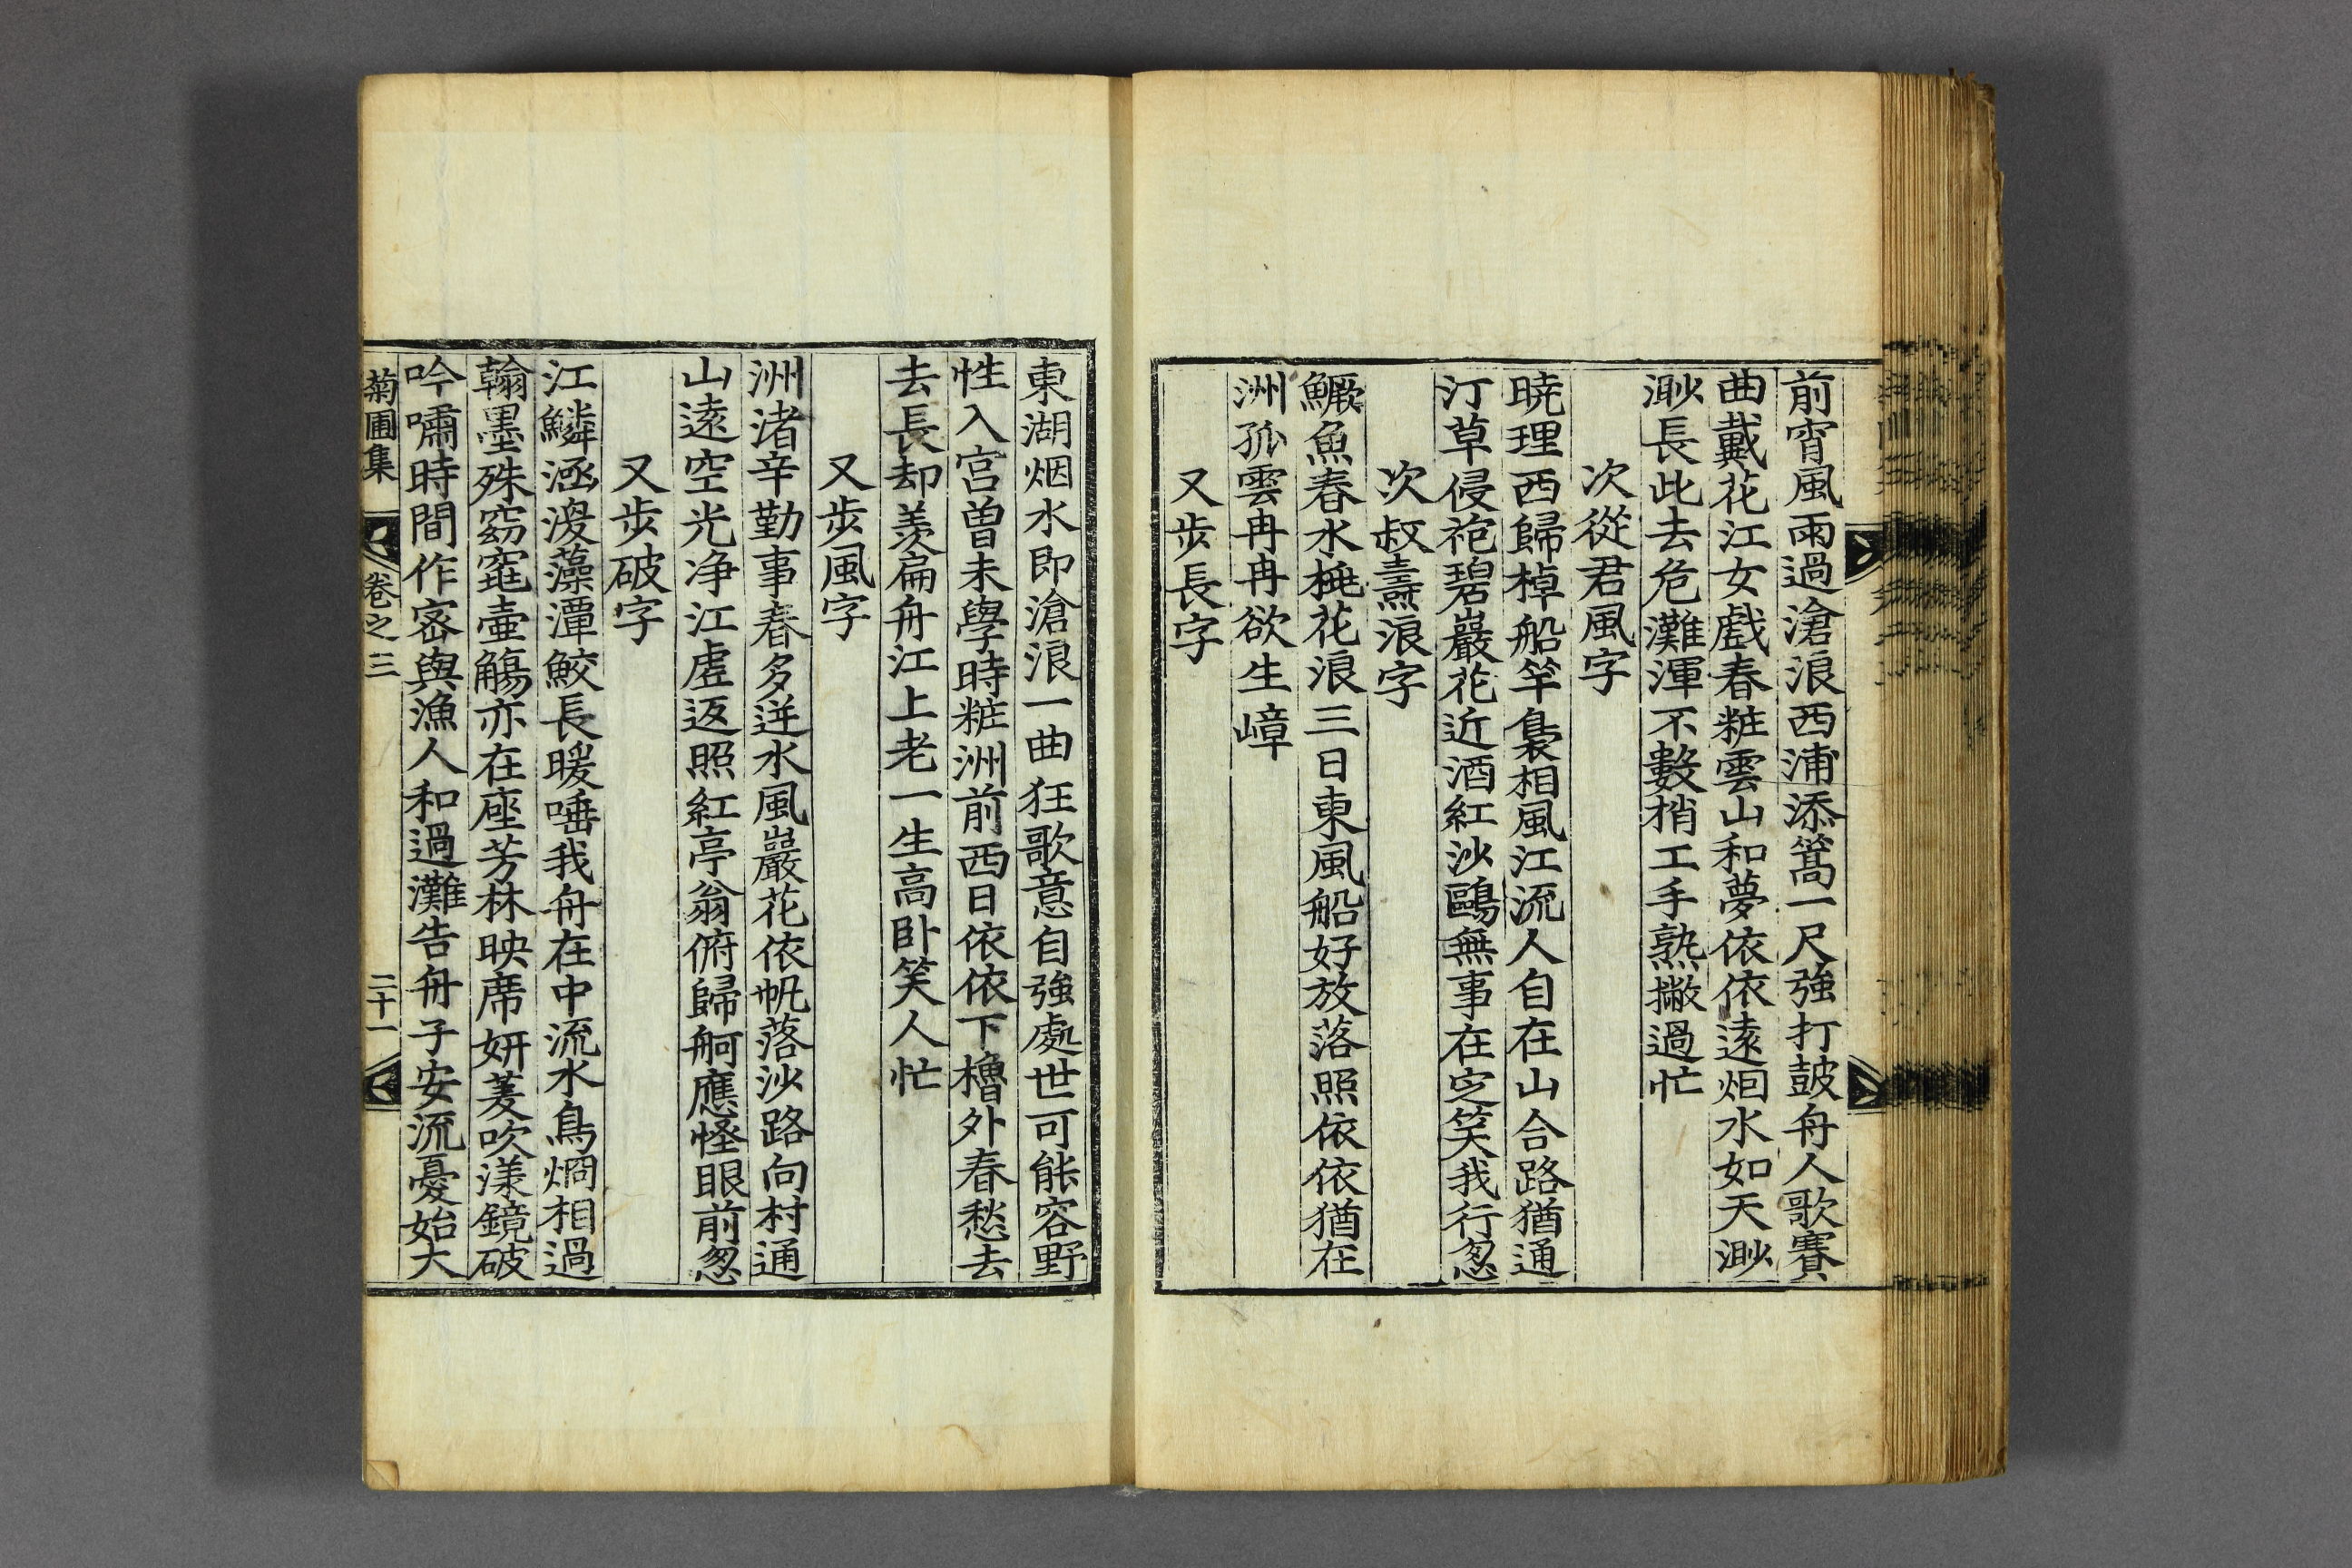 前宵風雨過滄浪西浦添篙一尺強打鼓舟人歌賽
曲戴花江女戲春粧雲山和夢依依遠烟水如天渺
渺長此去危灘渾不數梢工手熟撇過忙
次從君風字
曉理西歸棹船竿裊相風江流人自在山合路猶通
汀草侵袍碧巖花近酒紅沙鷗無事在定笑我行怱
次叔燾浪字
鱖魚春水桃花浪三日東風船好放落照依依猶在
洲孤雲冉冉欲生嶂
又步長字
東湖烟水即滄浪一曲狂歌意自強處世可能容野
性入宮曾未學時粧洲前西日依依下櫓外春愁去
去長却羡扁舟江上老一生高卧笑人忙
又步風字
洲渚辛勤事春多迸水風巖花依帆落沙路向村通
山遠空光净江虛返照紅亭翁俯歸舸應怪眼前怱
又步破字
江鱗涵澓藻潭鮫長暖唾我舟在中流水鳥烱相過
翰墨殊窈窕壷觴亦在座芳林映席妍菱吹漾鏡破
吟嘯時間作密與漁人和過灘告舟子安流憂始大
菊圃集 卷之三 二十一